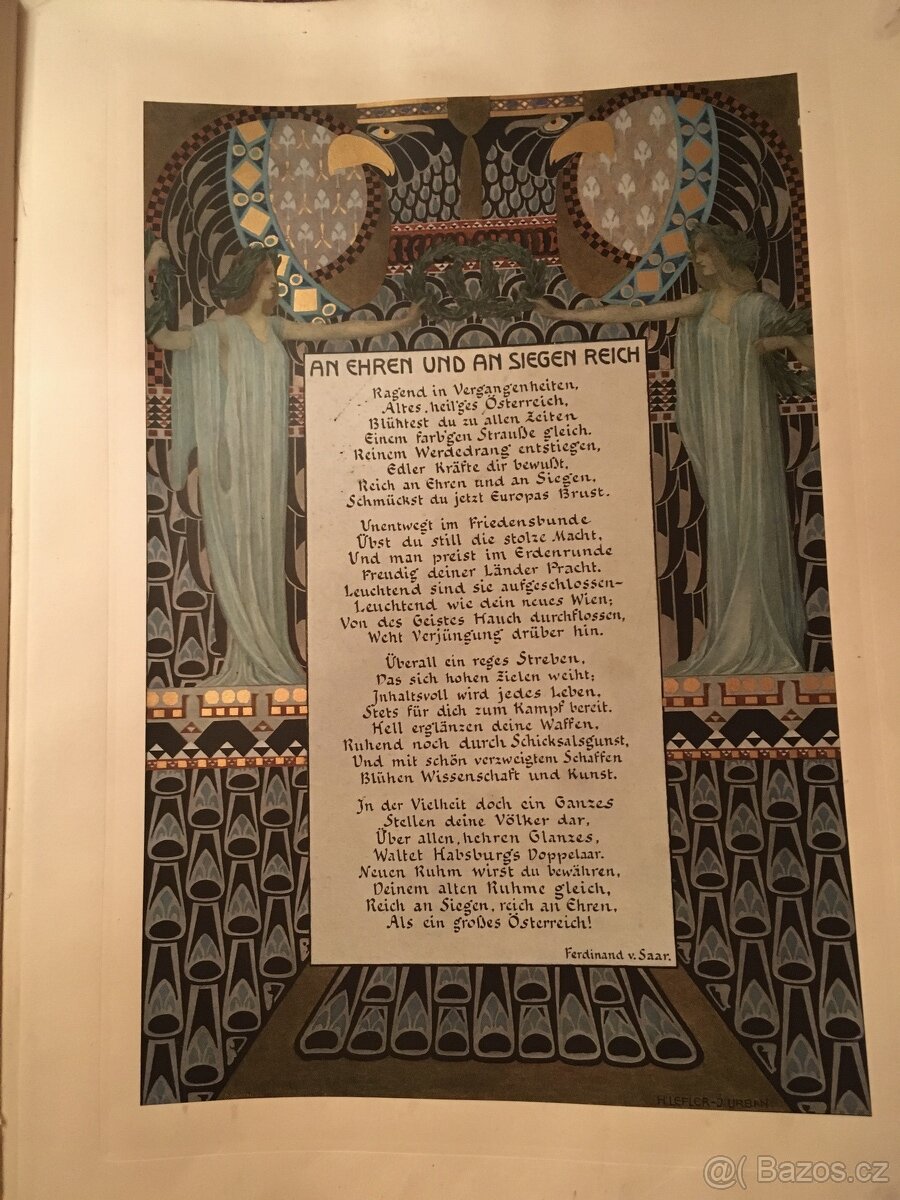 AN EHREN UND AN SIEGEN REICH
Ragend in Vergangenheiten,
Altes, heil'ges Österreich,
Blühtest du zu allen Zeiten
Einem farb'gen Strauße gleich.
Reinem Werdedrang entstiegen,
Edler Kräfte dir bewußt,
Reich an Ehren und an Siegen,
Schmückst du jetzt Europas Brust.
Unentwegt im Friedensbunde
Übst du still die stolze Macht,
Und man preist im Erdenrunde
Freudig deiner Länder Pracht.
Leuchtend sind sie aufgeschlossen-
Leuchtend wie dein neues Wien;
Von des Geistes Hauch durchflossen,
Weht Verjüngung drüber hin.
Überall ein reges Streben,
Das sich hohen Zielen weiht;
Inhaltsvoll wird jedes Leben,
Stets für dich zum Kampf bereit.
Hell erglänzen deine Waffen,
Ruhend noch durch Schicksalsgunst,
Und mit schön verzweigtem Schaffen
Blühen Wissenschaft und Kunst.
In der Vielheit doch ein Ganzes
Stellen deine Völker dar,
Über allen, hehren Glanzes,
Waltet Habsburgs Doppelaar.
Neuen Ruhm wirst du bewähren,
Deinem alten Ruhme gleich,
Reich an Siegen, reich an Ehren,
Als ein großes Österreich!
Ferdinand v. Saar.
H. LEFLER-J. URBAN
@( Bazos.cz